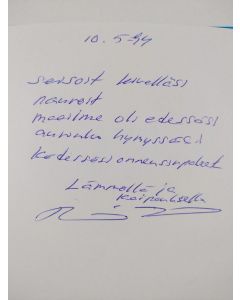 10.5-94
seisoit kivelläsi
nauroit
maailma oli edessäsi
aurinko hymyssäsi
kädessäsi onnensirpaleet
Lämmöllä ja
kaipauksella